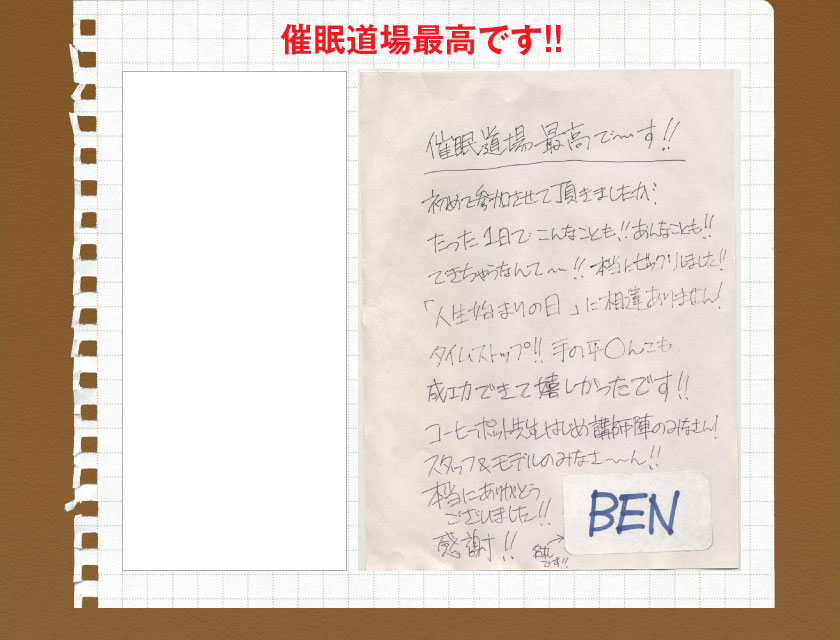 催眠道場最高です!!
催眠道場最高で〜す!!
初めて参加させて頂きましたが!
たった1日でこんなことも!!あんなことも!!
できちゃうなんて〜!!本当にビックリしました!!
「人生始まりの日」に相違ありません!
タイムストップ!!手の平〇んこも
成功できて嬉しかったです!!
コーヒーポット先生はじめ講師陣のみなさん!
スタッフ&モデルのみなさ〜〜ん!!
本当にありがとう
ございました!!
感謝!!
名札→
です!!
BEN